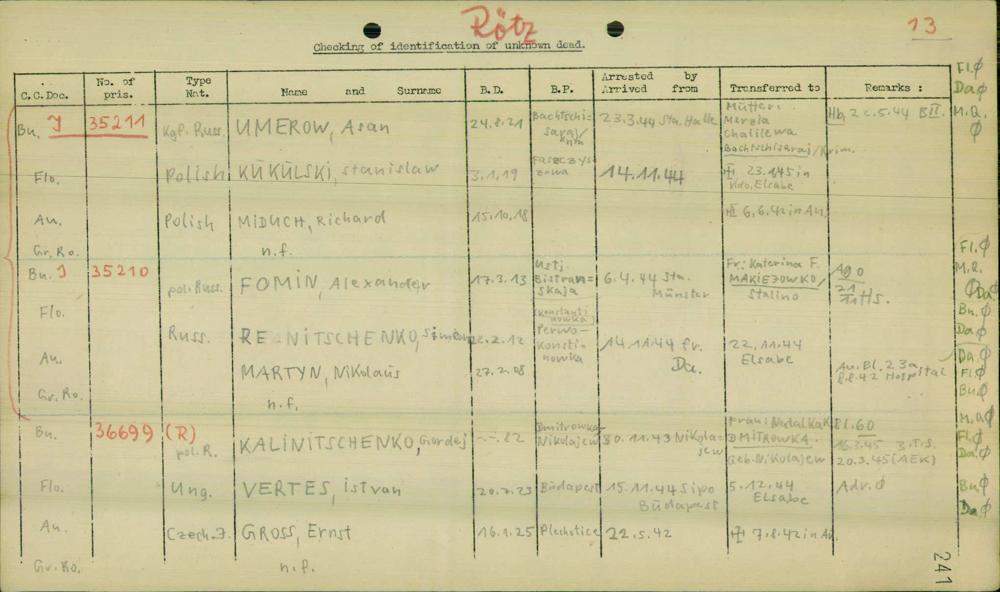 Rötz
13
Checking of identification of unknown dead.
C.C.Doc. No. of pris. Type Nat. Name and Surname B.D. B.P. Arrested by Arrived from Transferred to Remarks :
Bu. J 35211 Kgf. Russ. UMEROW, Asan 24.8.21 Bachtschi-saraj/Krim 23.3.44 Sta. Halle Mutter: Merzia Chalilewa Bachtschisaraj/Krim.
Flo. Polish KUKULSKI, Stanislaw 3.1.19 14.11.44 23.1.45 in Elsabe
Au. Polish MIDUCH, Richard 15.10.18 6.6.42 in Au.
Gr.Ro. n.f.
Bu. J 35210 pol. Russ. FOMIN, Alexander 17.3.13 Ustj. Bistran=skaja 6.4.44 Sta. Münster Fr: Katerina F. MAKIEJOWKO/Stalino
Flo. Russ. RE-NITSCHENKO, Simeon 22.2.12 (Konstanti-nowka) Perwo-Konsti-nowka 14.11.44 fr. Da. 22.11.44 Elsabe
Au. MARTYN, Nikolaus 27.2.08 Au. Bl. 23a 8.8.42 Hospital
Gr.Ro. n.f.
Bu. 36699 (R) pol. R. KALINITSCHENKO, Gordej -.-.82 Dmitrowka Nikolajew 30.11.43 Nikola=jew DMITROWKA. Geb. Nikolajew Bl.60 16.3.45 20.3.45 (AEK)
Flo. Ung. VERTES, istvan 20.7.23 Budapest 15.11.44 Sipo Budapest 5.12.44 Elsabe Adr. Ø
Au. Czech.J. GROSS, Ernst 16.1.25 Plechotice 22.5.42 7.8.42 in Au.
Gr.Ro. n.f.
Fl.Ø
Da Ø
M.R.
Ø
Fl.Ø
M.R.
Ø Da
Bu.Ø
Da Ø
Da.Ø
Fl Ø
Bu Ø
M.a Ø
Fl.Ø
Da.Ø
Bu Ø
Da.Ø
241